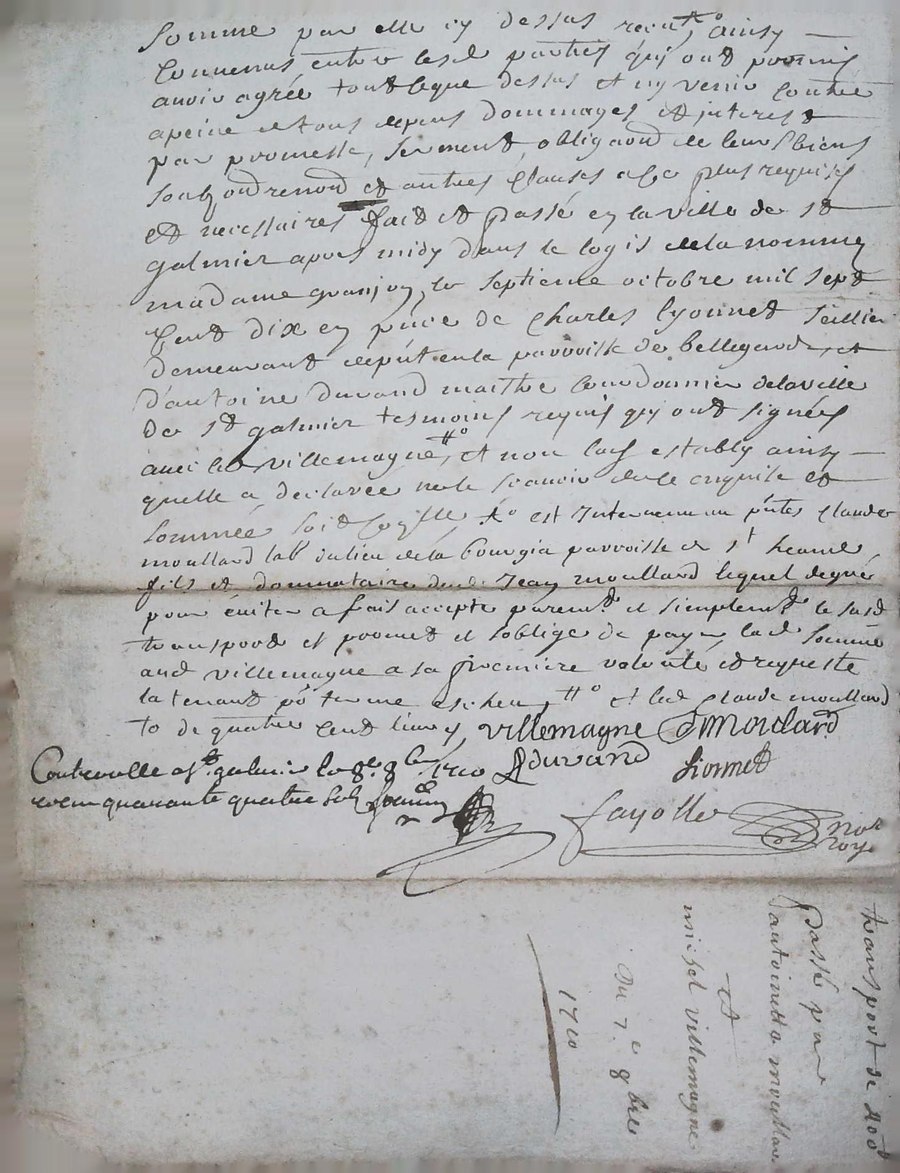 somme par elle cy dessus receu, ainsy
convenus entre lesd parties qui ont promis
avoir agrée tout ceque dessus et ny venir contre
apeine de tous depens dommages et interest
par promesse, serment, obliga͠on͠d de leurs biens
et autres clauses a ce plus requises
et necessaires fait et passé en la ville de st
galmier apres midy dans le logis de la nommée
madame granjon, le septieme octobre mil sept
cent dix en pñce de Charles Lyonnet sellier
demeurant depñt en la parroisse de bellegarde, et
d'antoine durand maitre Courdonnier de la ville
de st galmier tesmoins requis qui ont signées
avec led villemagne, #° et non lad establÿ ainsy
quelle a declarée ne le scavoir de ce enquise et
sommée est Intervenu en pñtes Claude
moullard labr du lieu de la parroisse de st
fils et donnataire de Jean moullard lequel degré
pour éviter a frais accepte puremt et simplemt le susd
transport et promet et soblige de payer lad somme
aud villemagne a sa premiere volonté et requeste
la tenant pr terme escheu, #° et led Claude moullard
to de quatre cent livres, villemagne C Moulard
Controolle a st galmier le 8e 8bre 1710 A durand Lionnet
recu quarante quatre sols
fayolle not
roy
transport de 400
passé par
antoinette moullard
et
michel villemagne
Du 7e 8bre
1710